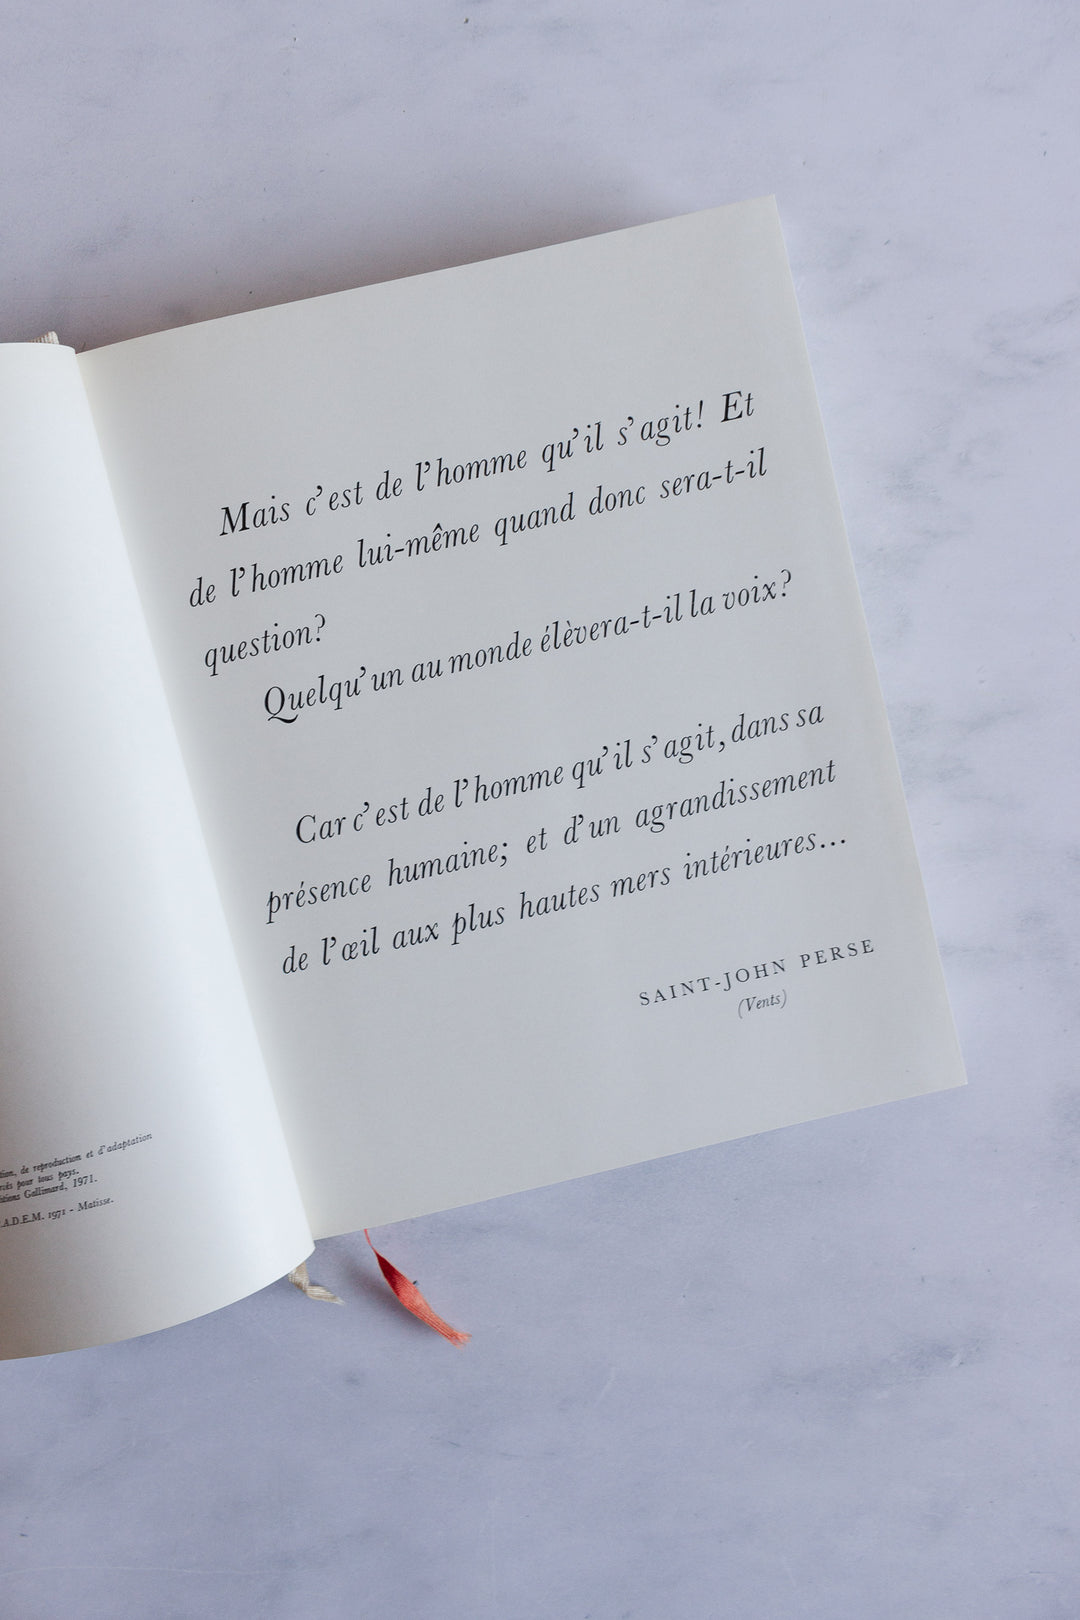 tion, de reproduction et d'adaptation
pour tous pays.
Gallimard, 1971.
A.D.E.M. 1971 - Matisse.
Mais c'est de l'homme qu'il s'agit! Et
de l'homme lui-même quand donc sera-t-il
question?
Quelqu'un au monde élèvera-t-il la voix?
Car c'est de l'homme qu'il s'agit, dans sa
présence humaine; et d'un agrandissement
de l'œil aux plus hautes mers intérieures...
SAINT-JOHN PERSE
(Vents)